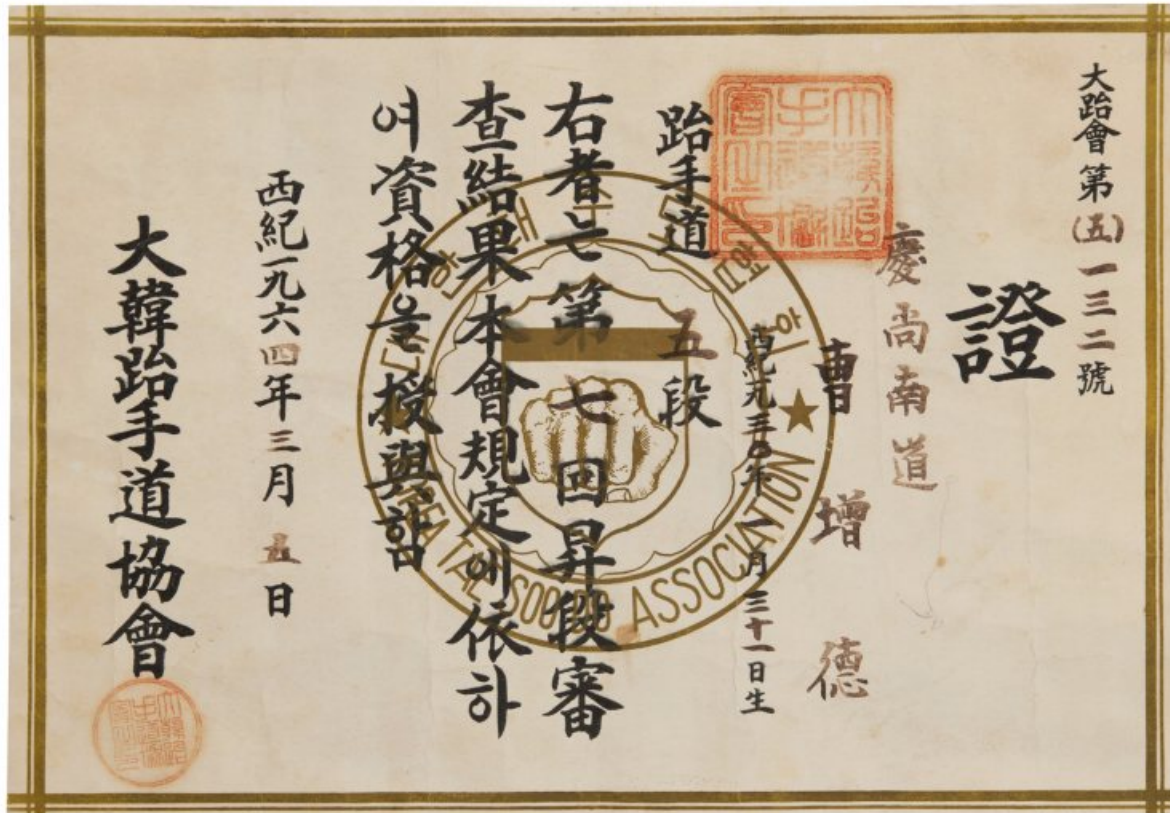 大跆會第(五)一三二號
證
慶尚南道
曺增德
西紀一九三〇年一月三十一日生
跆手道 五段
右者는 第七回昇段審
査結果本會規定에依하
여資格을授與함
西紀一九六四年三月五日
大韓跆手道協會
대한태수도협회
KOREA TAE SOO DO ASSOCIATION
大韓跆手道協會之印